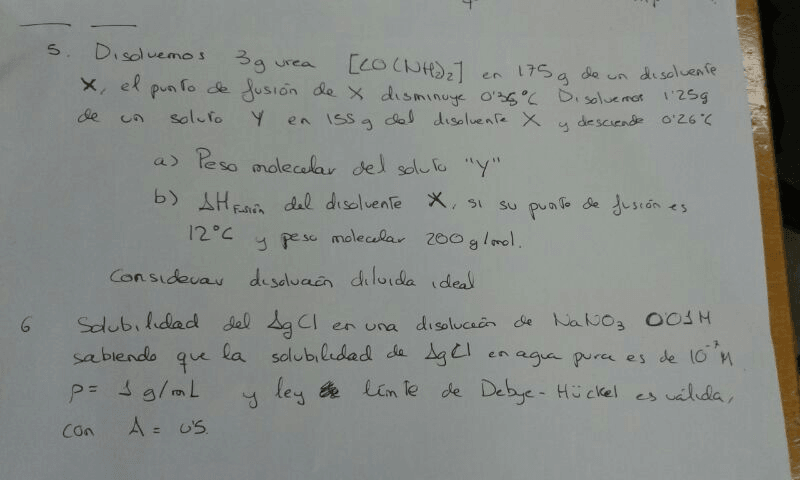 5. Disolvemos 3g urea [CO(NH2)2] en 175g de un disolvente
X, el punto de fusión de X disminuye 0'36°C Disolvemos 1'25g
de un soluto Y en 155g del disolvente X y desciende 0'26°C
a) Peso molecular del soluto "Y"
b) ΔHFusión del disolvente X, si su punto de fusión es
12°C y peso molecular 200g/mol.
Considerar disolución diluida ideal
6 Solubilidad del AgCl en una disolución de NaNO3 0'01M
sabiendo que la solubilidad de AgCl en agua pura es de 10^-7 M
ρ= 1 g/mL y ley límite de Debye-Hückel es válida,
con A = 0'5.